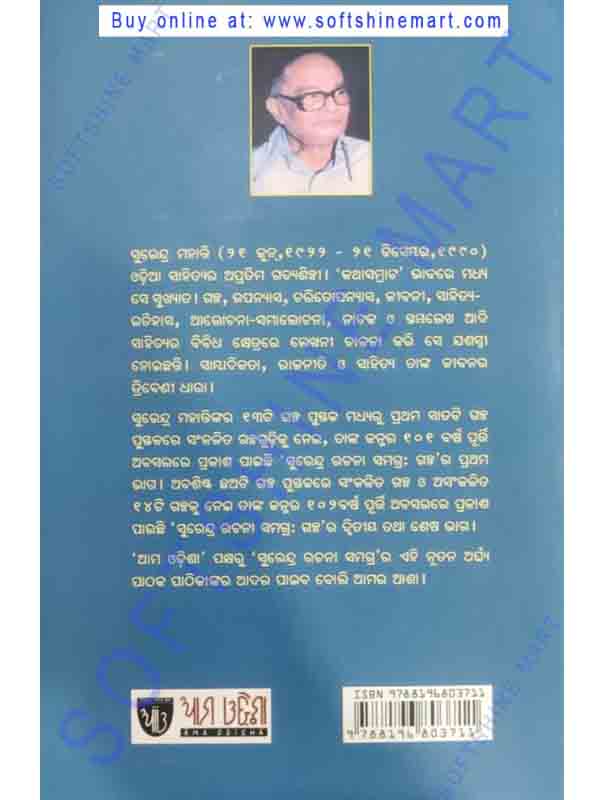 Buy online at: www.softshinemart.com
ସୁରେନ୍ଦ୍ର ମହାନ୍ତି (୨୧ ଜୁନ୍,୧୯୨୨ - ୨୧ ଡିସେମ୍ବର,୧୯୯୦)
ଓଡ଼ିଆ ସାହିତ୍ୟର ଅପ୍ରତିମ ଗଦ୍ୟଶିଳ୍ପୀ। 'କଥାସମ୍ରାଟ' ଭାବରେ ମଧ୍ୟ
ସେ ସୁଖ୍ୟାତ। ଗଳ୍ପ, ଉପନ୍ୟାସ, ଚରିତୋପନ୍ୟାସ, ଜୀବନୀ, ସାହିତ୍ୟ-
ଇତିହାସ, ଆଲୋଚନା-ସମାଲୋଚନା, ନାଟକ ଓ ସ୍ତମ୍ଭଲେଖ ଆଦି
ସାହିତ୍ୟର ବିବିଧ କ୍ଷେତ୍ରରେ ଲେଖନୀ ଚାଳନା କରି ସେ ଯଶସ୍ୱୀ
ହୋଇଛନ୍ତି। ସାମ୍ବାଦିକତା, ରାଜନୀତି ଓ ସାହିତ୍ୟ ତାଙ୍କ ଜୀବନର
ତ୍ରିବେଣୀ ଧାରା।
ସୁରେନ୍ଦ୍ର ମହାନ୍ତିଙ୍କର ୧୩ଟି ଗଳ୍ପ ପୁସ୍ତକ ମଧ୍ୟରୁ ପ୍ରଥମ ସାତଟି ଗଳ୍ପ
ପୁସ୍ତକରେ ସଂକଳିତ ଗଳ୍ପଗୁଡ଼ିକୁ ନେଇ, ତାଙ୍କ ଜନ୍ମର ୧୦୧ ବର୍ଷ ପୂର୍ତ୍ତି
ଅବସରରେ ପ୍ରକାଶ ପାଇଛି 'ସୁରେନ୍ଦ୍ର ରଚନା ସମଗ୍ର: ଗଳ୍ପ'ର ପ୍ରଥମ
ଭାଗ। ଅବଶିଷ୍ଟ ଛଅଟି ଗଳ୍ପ ପୁସ୍ତକରେ ସଂକଳିତ ଗଳ୍ପ ଓ ଅସଂକଳିତ
୧୪ଟି ଗଳ୍ପକୁ ନେଇ ତାଙ୍କ ଜନ୍ମର ୧୦୨ବର୍ଷ ପୂର୍ତ୍ତି ଅବସରରେ ପ୍ରକାଶ
ପାଉଛି 'ସୁରେନ୍ଦ୍ର ରଚନା ସମଗ୍ର: ଗଳ୍ପ'ର ଦ୍ୱିତୀୟ ତଥା ଶେଷ ଭାଗ।
'ଆମ ଓଡ଼ିଶା' ପକ୍ଷରୁ 'ସୁରେନ୍ଦ୍ର ରଚନା ସମଗ୍ର'ର ଏହି ନୂତନ ଅର୍ଘ୍ୟ
ପାଠକ ପାଠିକାଙ୍କର ଆଦର ପାଇବ ବୋଲି ଆମର ଆଶା।
ଆମ ଓଡ଼ିଶା
AMA ODISHA
ISBN 9788196803711
9 788196 803711
SOFTSHINE MART
SOFTSHINE MART
SOFTSHINE MART